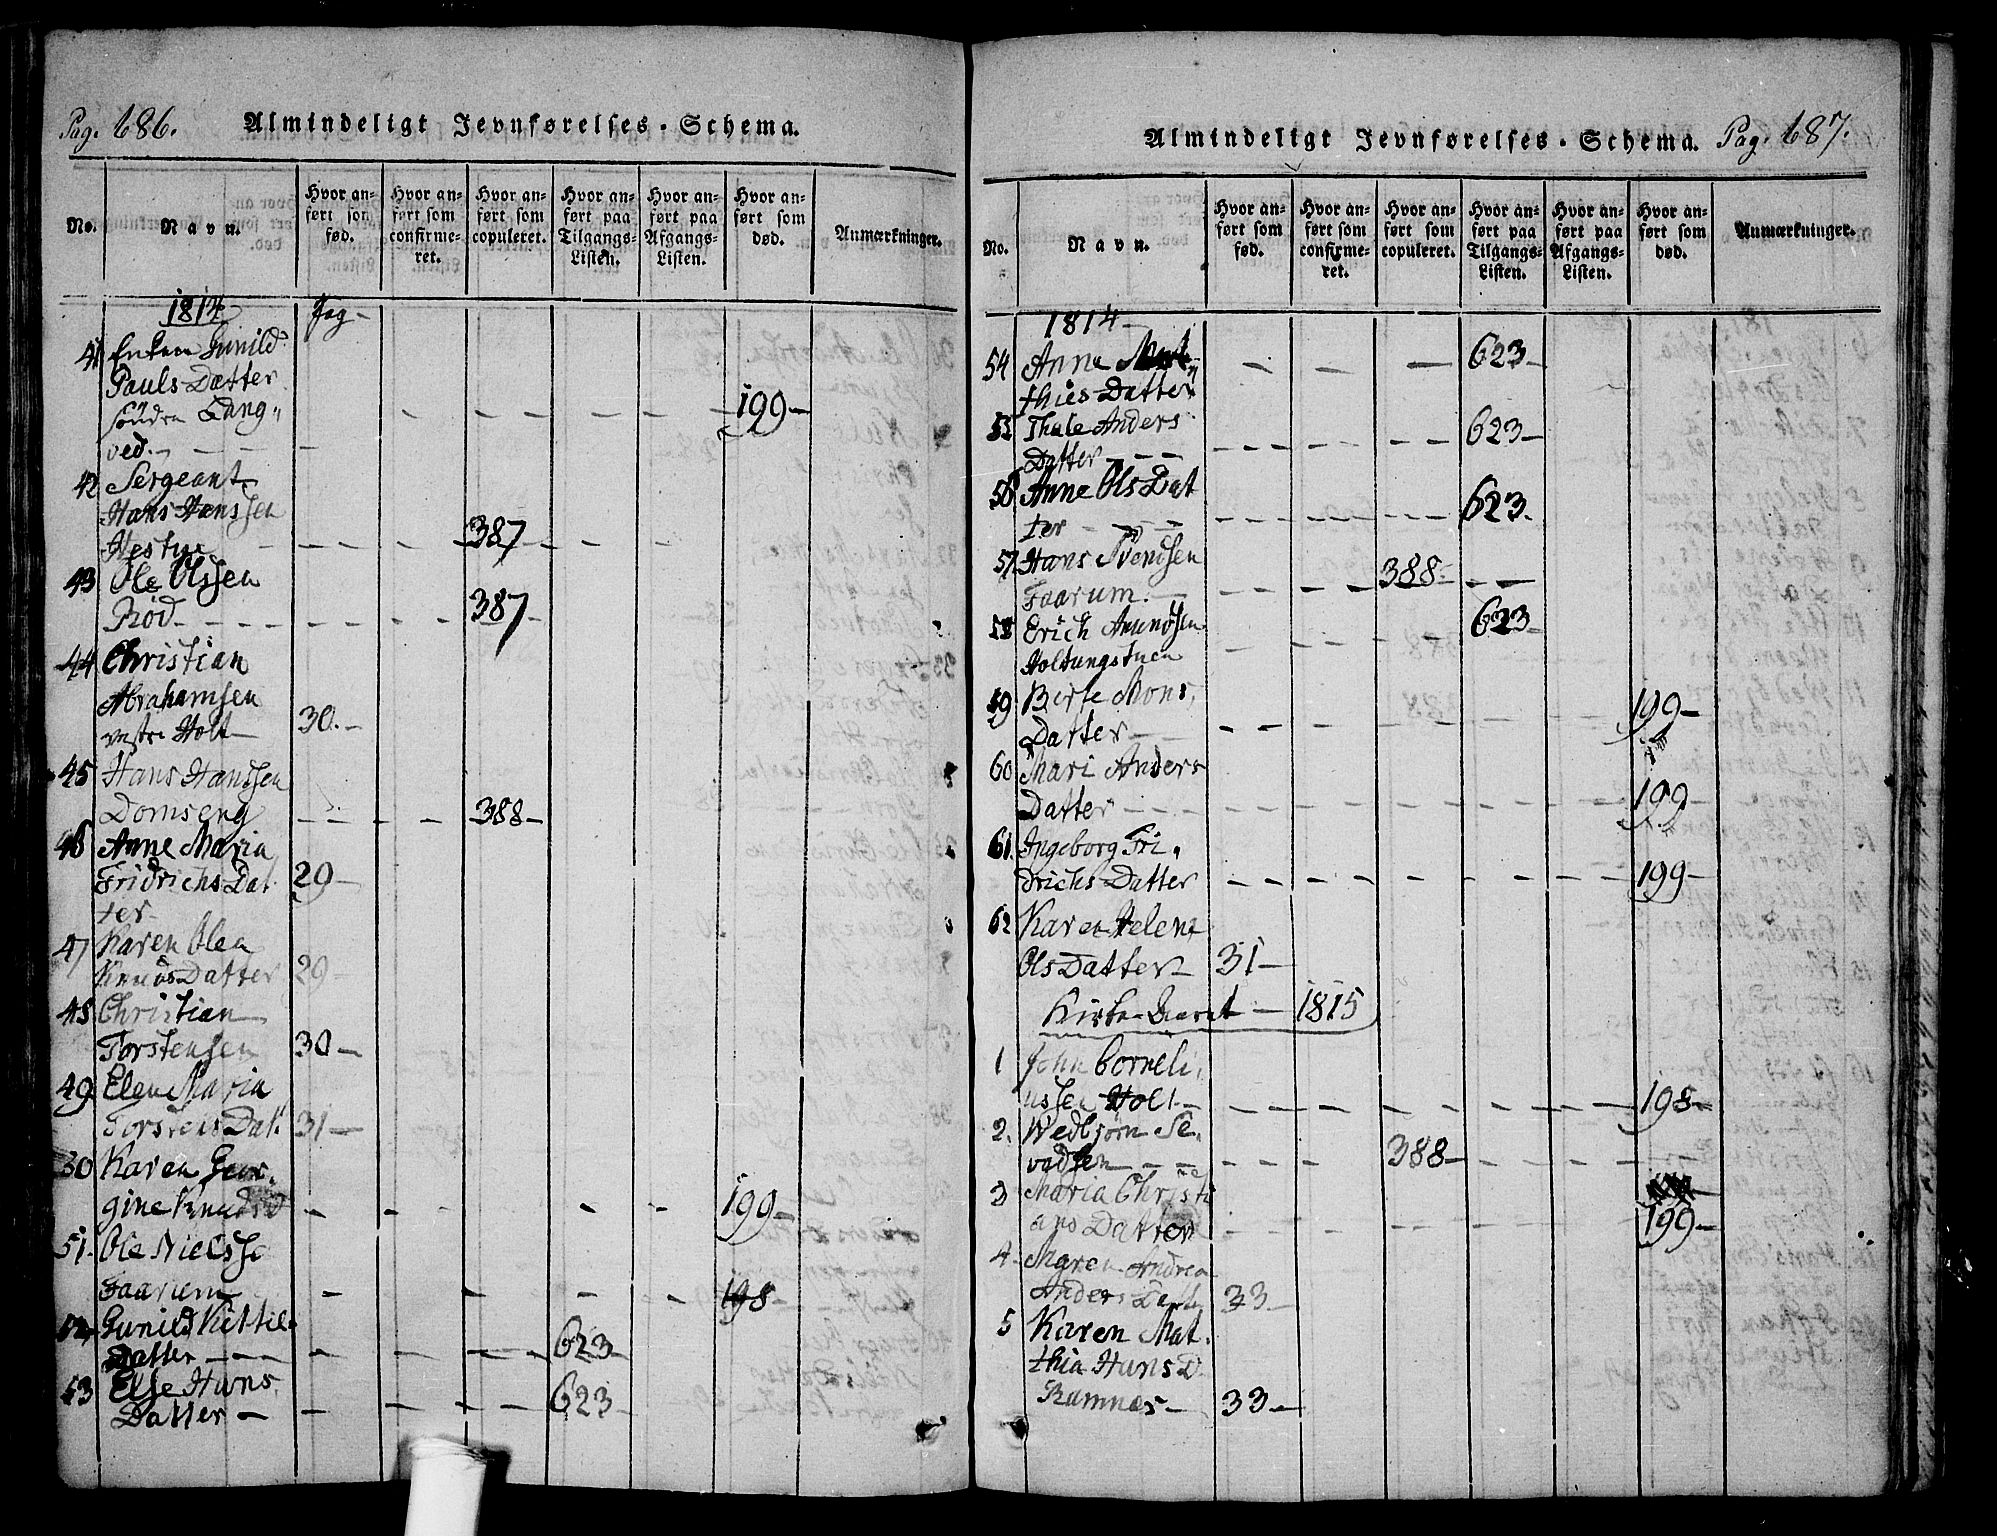 Pag. 686. Almindeligt Jevnførelses-Schema.
No.
Navn.
Hvor anført som fød.
Hvor anført som confirmeret.
Hvor anført som copuleret.
Hvor anført paa Tilgangs-Listen.
Hvor anført paa Afgangs-Listen.
Hvor anført som død.
Anmærkninger.
1814 Pag-
41 Enken Gunild
Pauls Datter
söndre Lang„ 199-
ved.
42 Sergeant
Hans Hanssen
387
43 Ole Olssen
Röd 387
44 Christian
Abrahamsen
vestre Holt 30.
45 Hans Hanssen
Domseng 388
46 Anne Maria
Fridrichs Dat 29
ter
47 Karen Olea
Knuds Datter 29
48 Christian
Torstensen 30
49 Elen Maria
Torstens Dat. 31
50 Karen Geor-
gine Knudsd 199
51. Ole Nielsse
Faarum 198
52 Gunild Kittils
Datter 623
53 Else Hans
Datter 623
Almindeligt Jevnførelses-Schema. Pag. 687.
No.
Navn.
Hvor anført som fød.
Hvor anført som confirmeret.
Hvor anført som copuleret.
Hvor anført paa Tilgangs-Listen.
Hvor anført paa Afgangs-Listen.
Hvor anført som død.
Anmærkninger.
1814
54 Anne Mat 623
thies Datter
55 Thale Anders 623
Datter
56 Anne Ols Dat
ter 623
57 Hans Svendsen 388
Faarum.
58 Erich Amundsen 623
Holtungstuen
59 Berte Mons, 199
Datter
60 Mari Anders
Datter 199
61. Ingeborg Fri-
drichs Datter 199
62 Karen Helene
Ols Datter 31
Kirke Aaret 1815
1 John Corneli,
ussen Holt 198
2. Wedbjørn Se,
vadsen 388
3 Maria Christi
ans Datter 199
4 Maren Andrea
Anders 33
5 Karen Mat-
thia Hans D.
Ramnæs 33